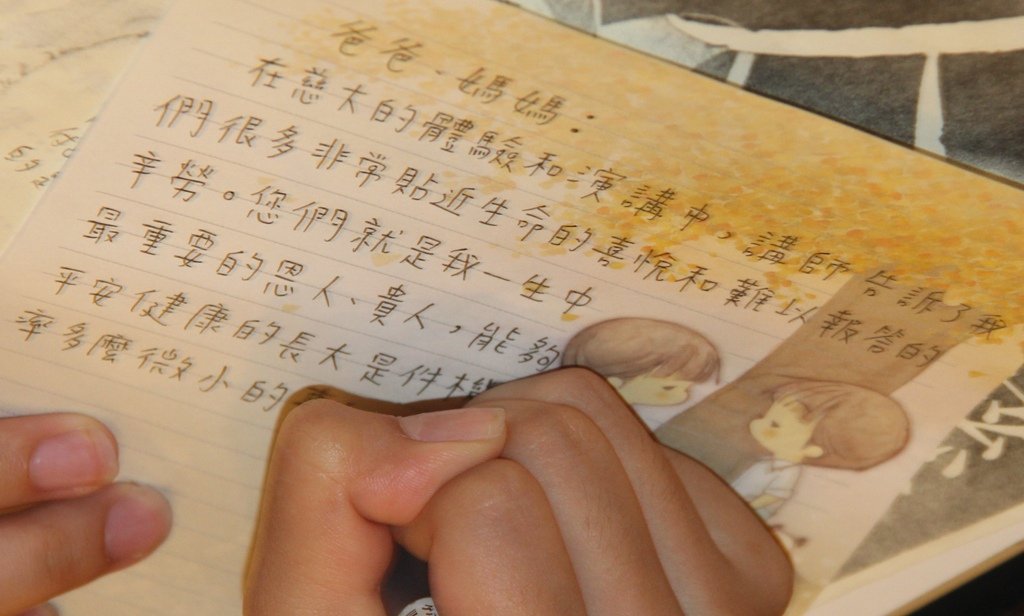 爸爸、媽媽：
在慈大的體驗和演講中，講師告訴了我
們很多非常貼近生命的喜悅和難以報答的
辛勞。您們就是我一生中
最重要的恩人、貴人，能夠
平安健康的長大是件機
率多麼微小的